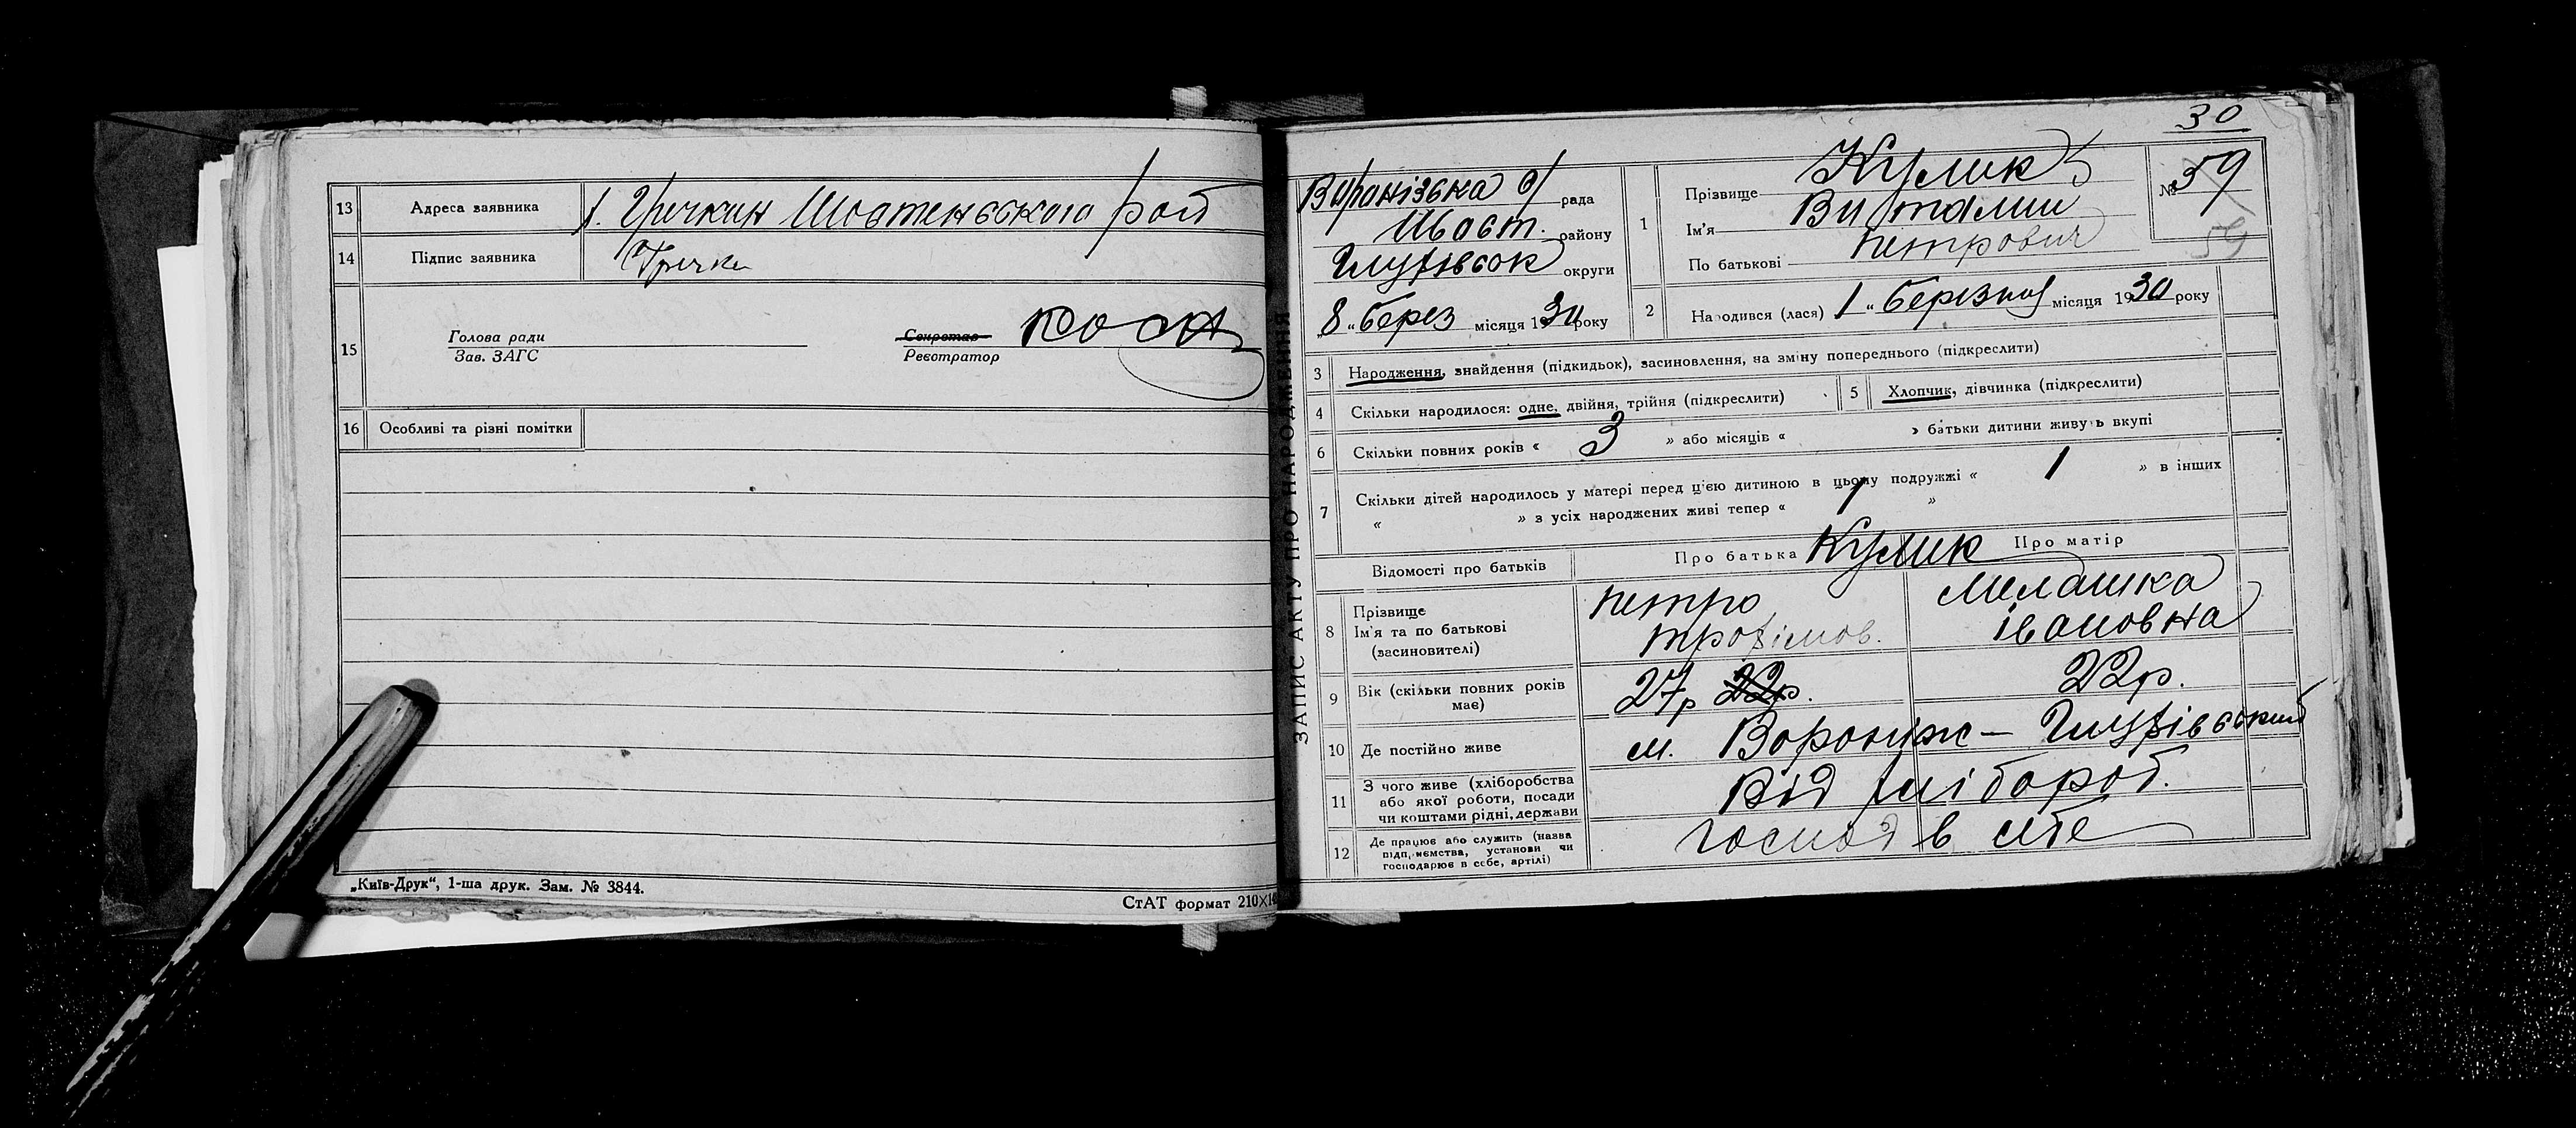 13 Адреса заявника х. Гречкин Шостенського рай
14 Підпис заявника Гречка
15 Голова ради
Зав. ЗАГС
Секретар
Реєстратор
16 Особливі та різні помітки
„Київ-Друк“, 1-ша друк. Зам. № 3844.
СтАТ формат 210×1
ЗАПИС АКТУ ПРО НАРОДЖЕННЯ
30
рада
Шост. району
округи
8 „ берез місяця 1930 року
1 Прізвище Кулик
Ім'я Виталии
По батькові петрович
№ 59
59
2 Народився (лася) 1 „ березня місяця 1930 року
3 Народження, знайдення (підкидьок), засиновлення, на зміну попереднього (підкреслити)
4 Скільки народилося: одне, двійня, трійня (підкреслити)
5 Хлопчик, дівчинка (підкреслити)
6 Скільки повних років « 3 » або місяців « » батьки дитини живуть вкупі
7 Скільки дітей народилось у матері перед цією дитиною в цьому подружжі « 1 » в інших
« » з усіх народжених живі тепер « 1 »
Відомості про батьків Про батька Кулик Про матір
8 Прізвище
Ім'я та по батькові
(засиновителі)
петро
трохімов.
Мелашка
івановна
9 Вік (скільки повних років має) 27р 22р. 22р.
10 Де постійно живе м. Вороніж – Глухівський
11 З чого живе (хліборобства
або якої роботи, посади
чи коштами рідні, держави
Від хлібороб.
12 Де працює або служить (назва
підприємства, установи чи
господарює в себе, артілі)
господ в себе